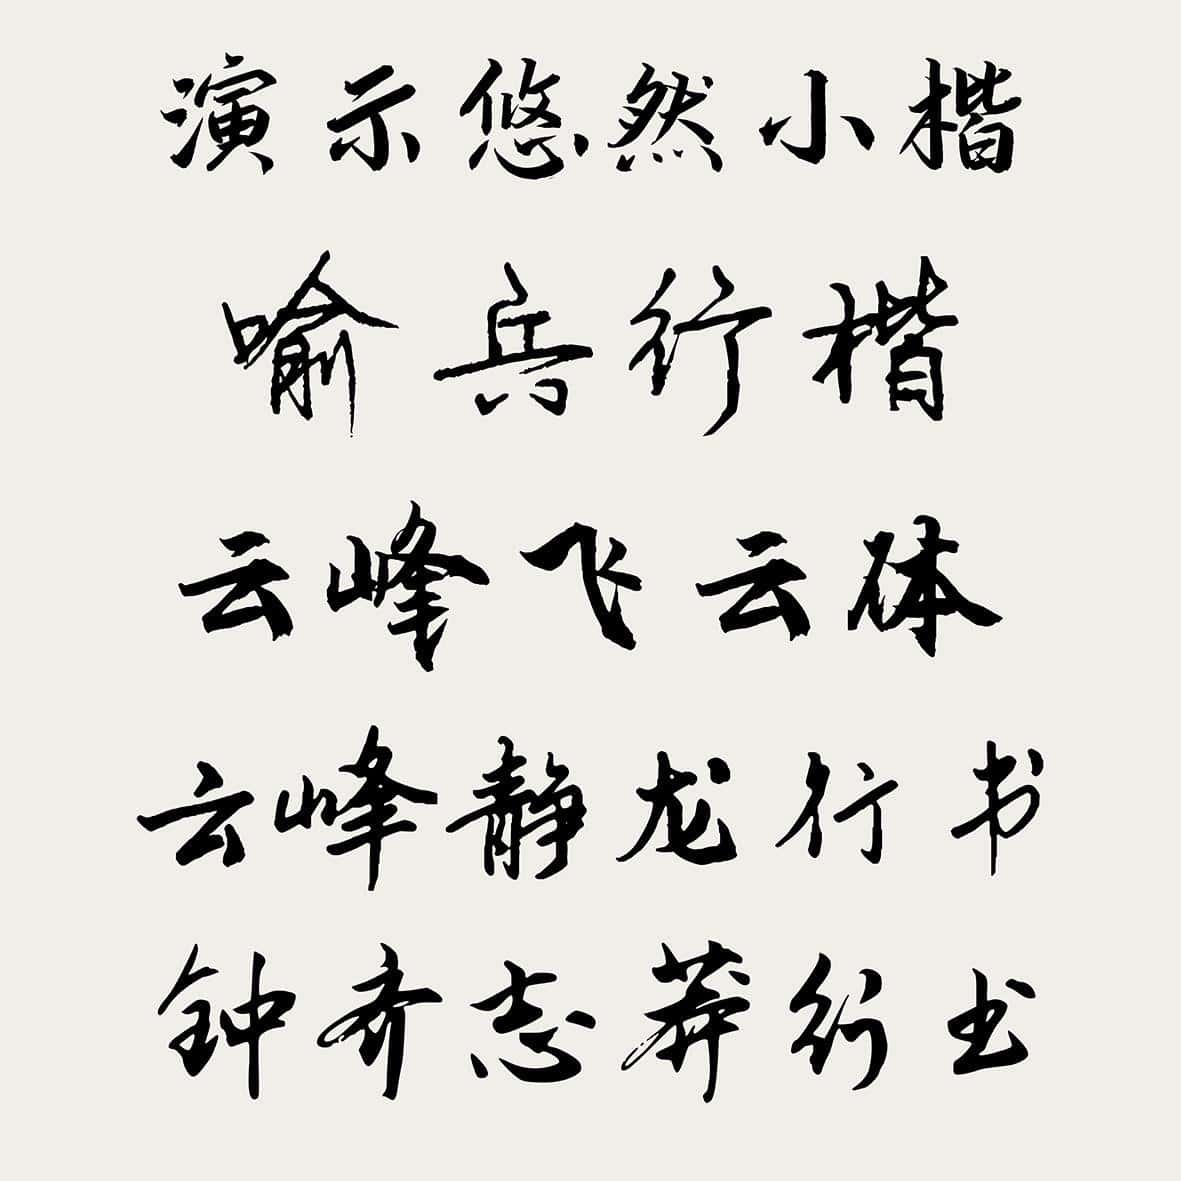 演示悠然小楷
喻兵行楷
云峰飞云体
云峰静龙行书
钟齐志莽行书